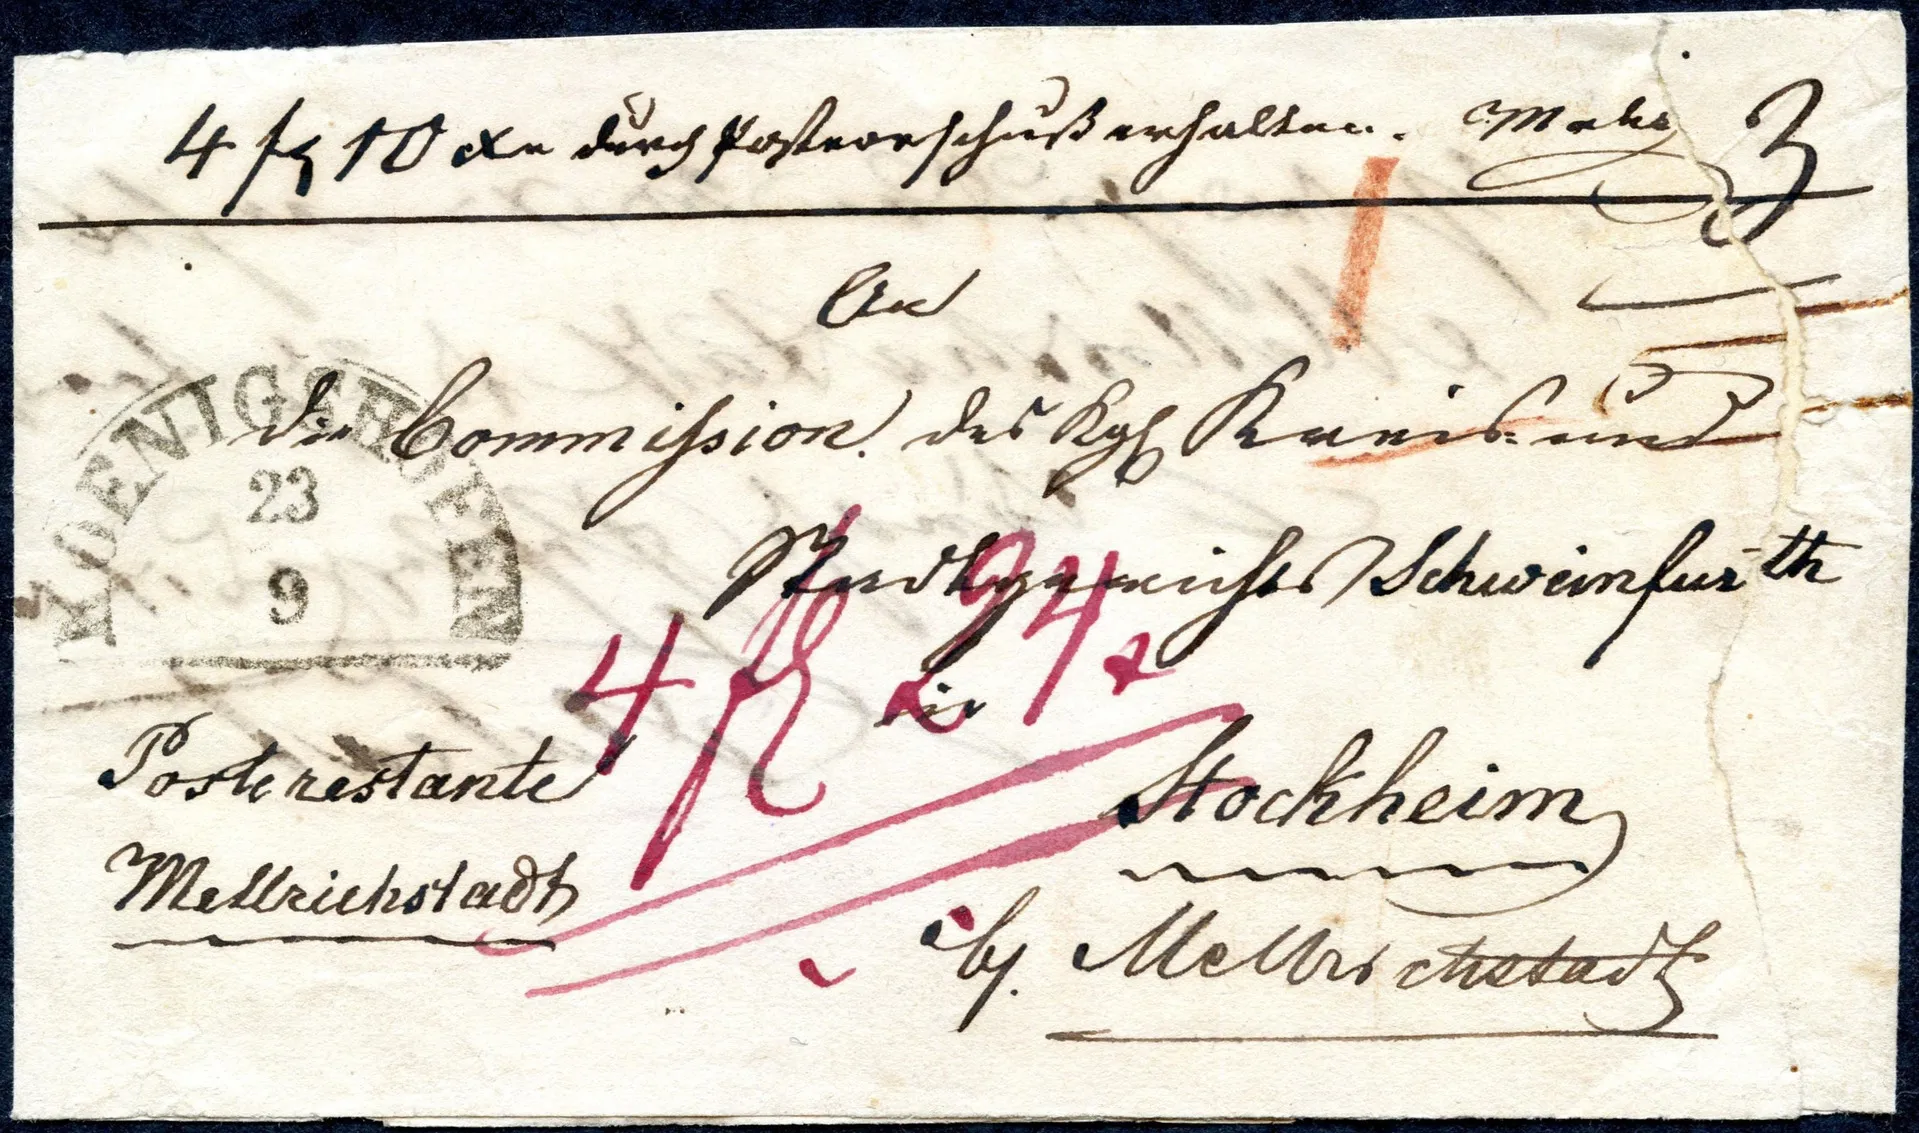 4 fl 10 xr durch Postvorschuß erhalten.
3
An
KOENIGSHOFEN
23
9
die Commission des Kgl Kreis- und
Stadtgerichts Schweinfurth
in
4 fl 24 x
Poste restante
Stockheim
Mellrichstadt
by. Mellrichstadt